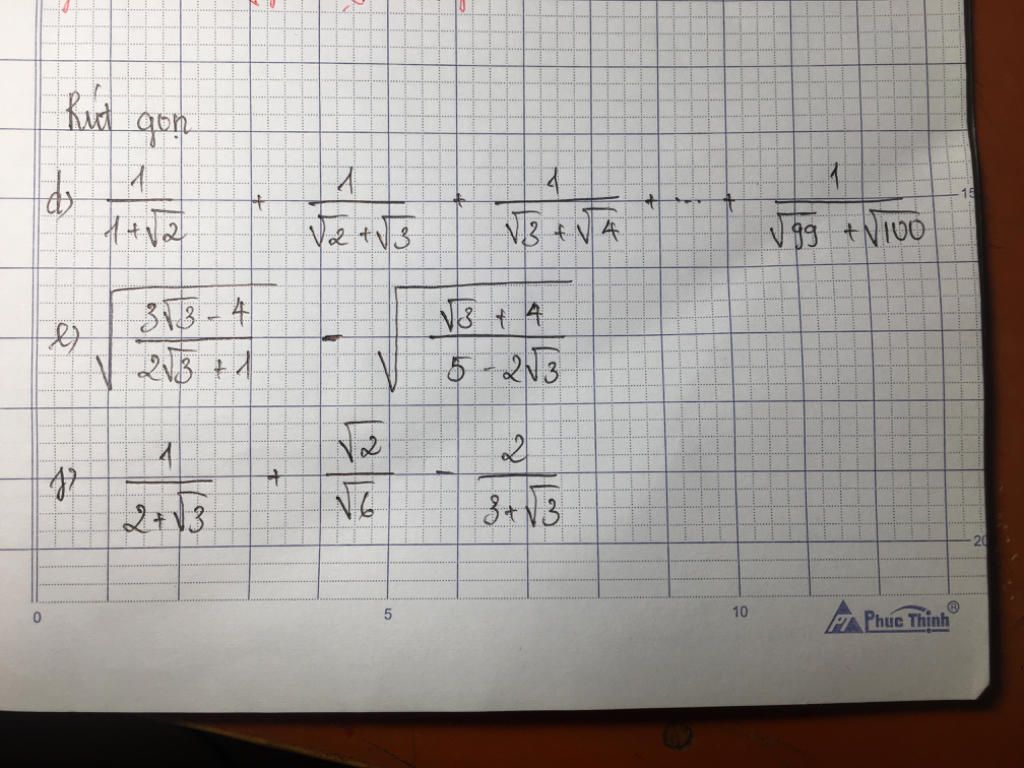 Rút gọn
d) 1/(1+√2) + 1/(√2+√3) + 1/(√3+√4) + ... + 1/(√99+√100)
e) √((3√3-4)/(2√3+1)) - √((√3+4)/(5-2√3))
f) 1/(2+√3) + √2/√6 - 2/(3+√3)
15
20
0 5 10
Phuc Thịnh®